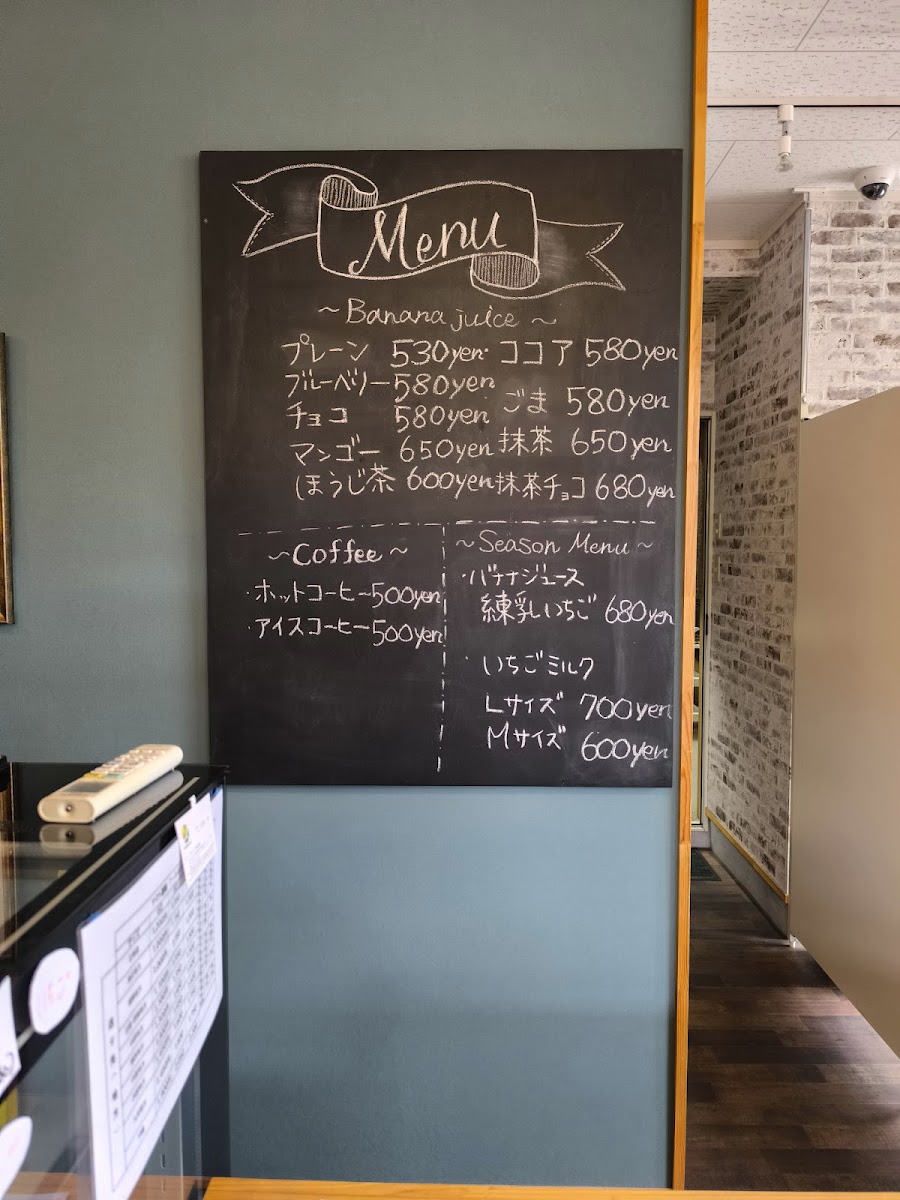 Menu
~Banana juice~
プレーン 530yen・ココア 580yen
ブルーベリー580yen
チョコ 580yen ごま 580yen
マンゴー 650yen 抹茶 650yen
ほうじ茶 600yen 抹茶チョコ 680yen
~Coffee~
・ホットコーヒー500yen
・アイスコーヒー500yen
~Season Menu~
・バナナジュース
練乳いちご 680yen
・いちごミルク
Lサイズ 700yen
Mサイズ 600yen
いちご